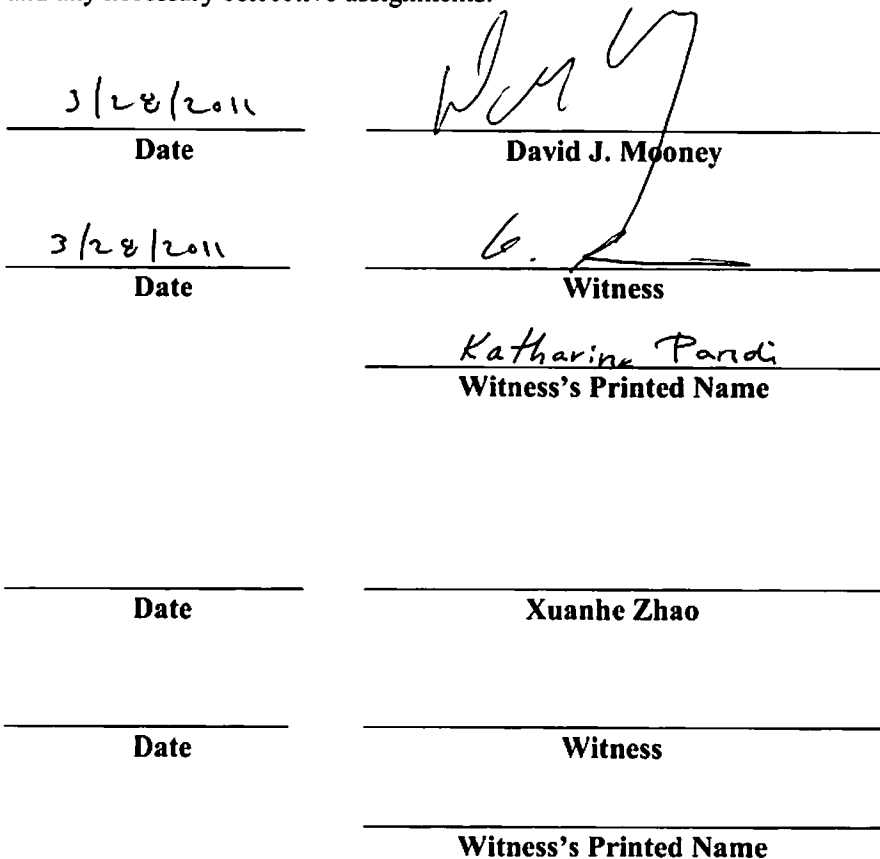 and any necessary corrective assignments.
3/28/2011
Date David J. Mooney
3/28/2011
Date Witness
Katharine Pandi
Witness's Printed Name
Date Xuanhe Zhao
Date Witness
Witness's Printed Name